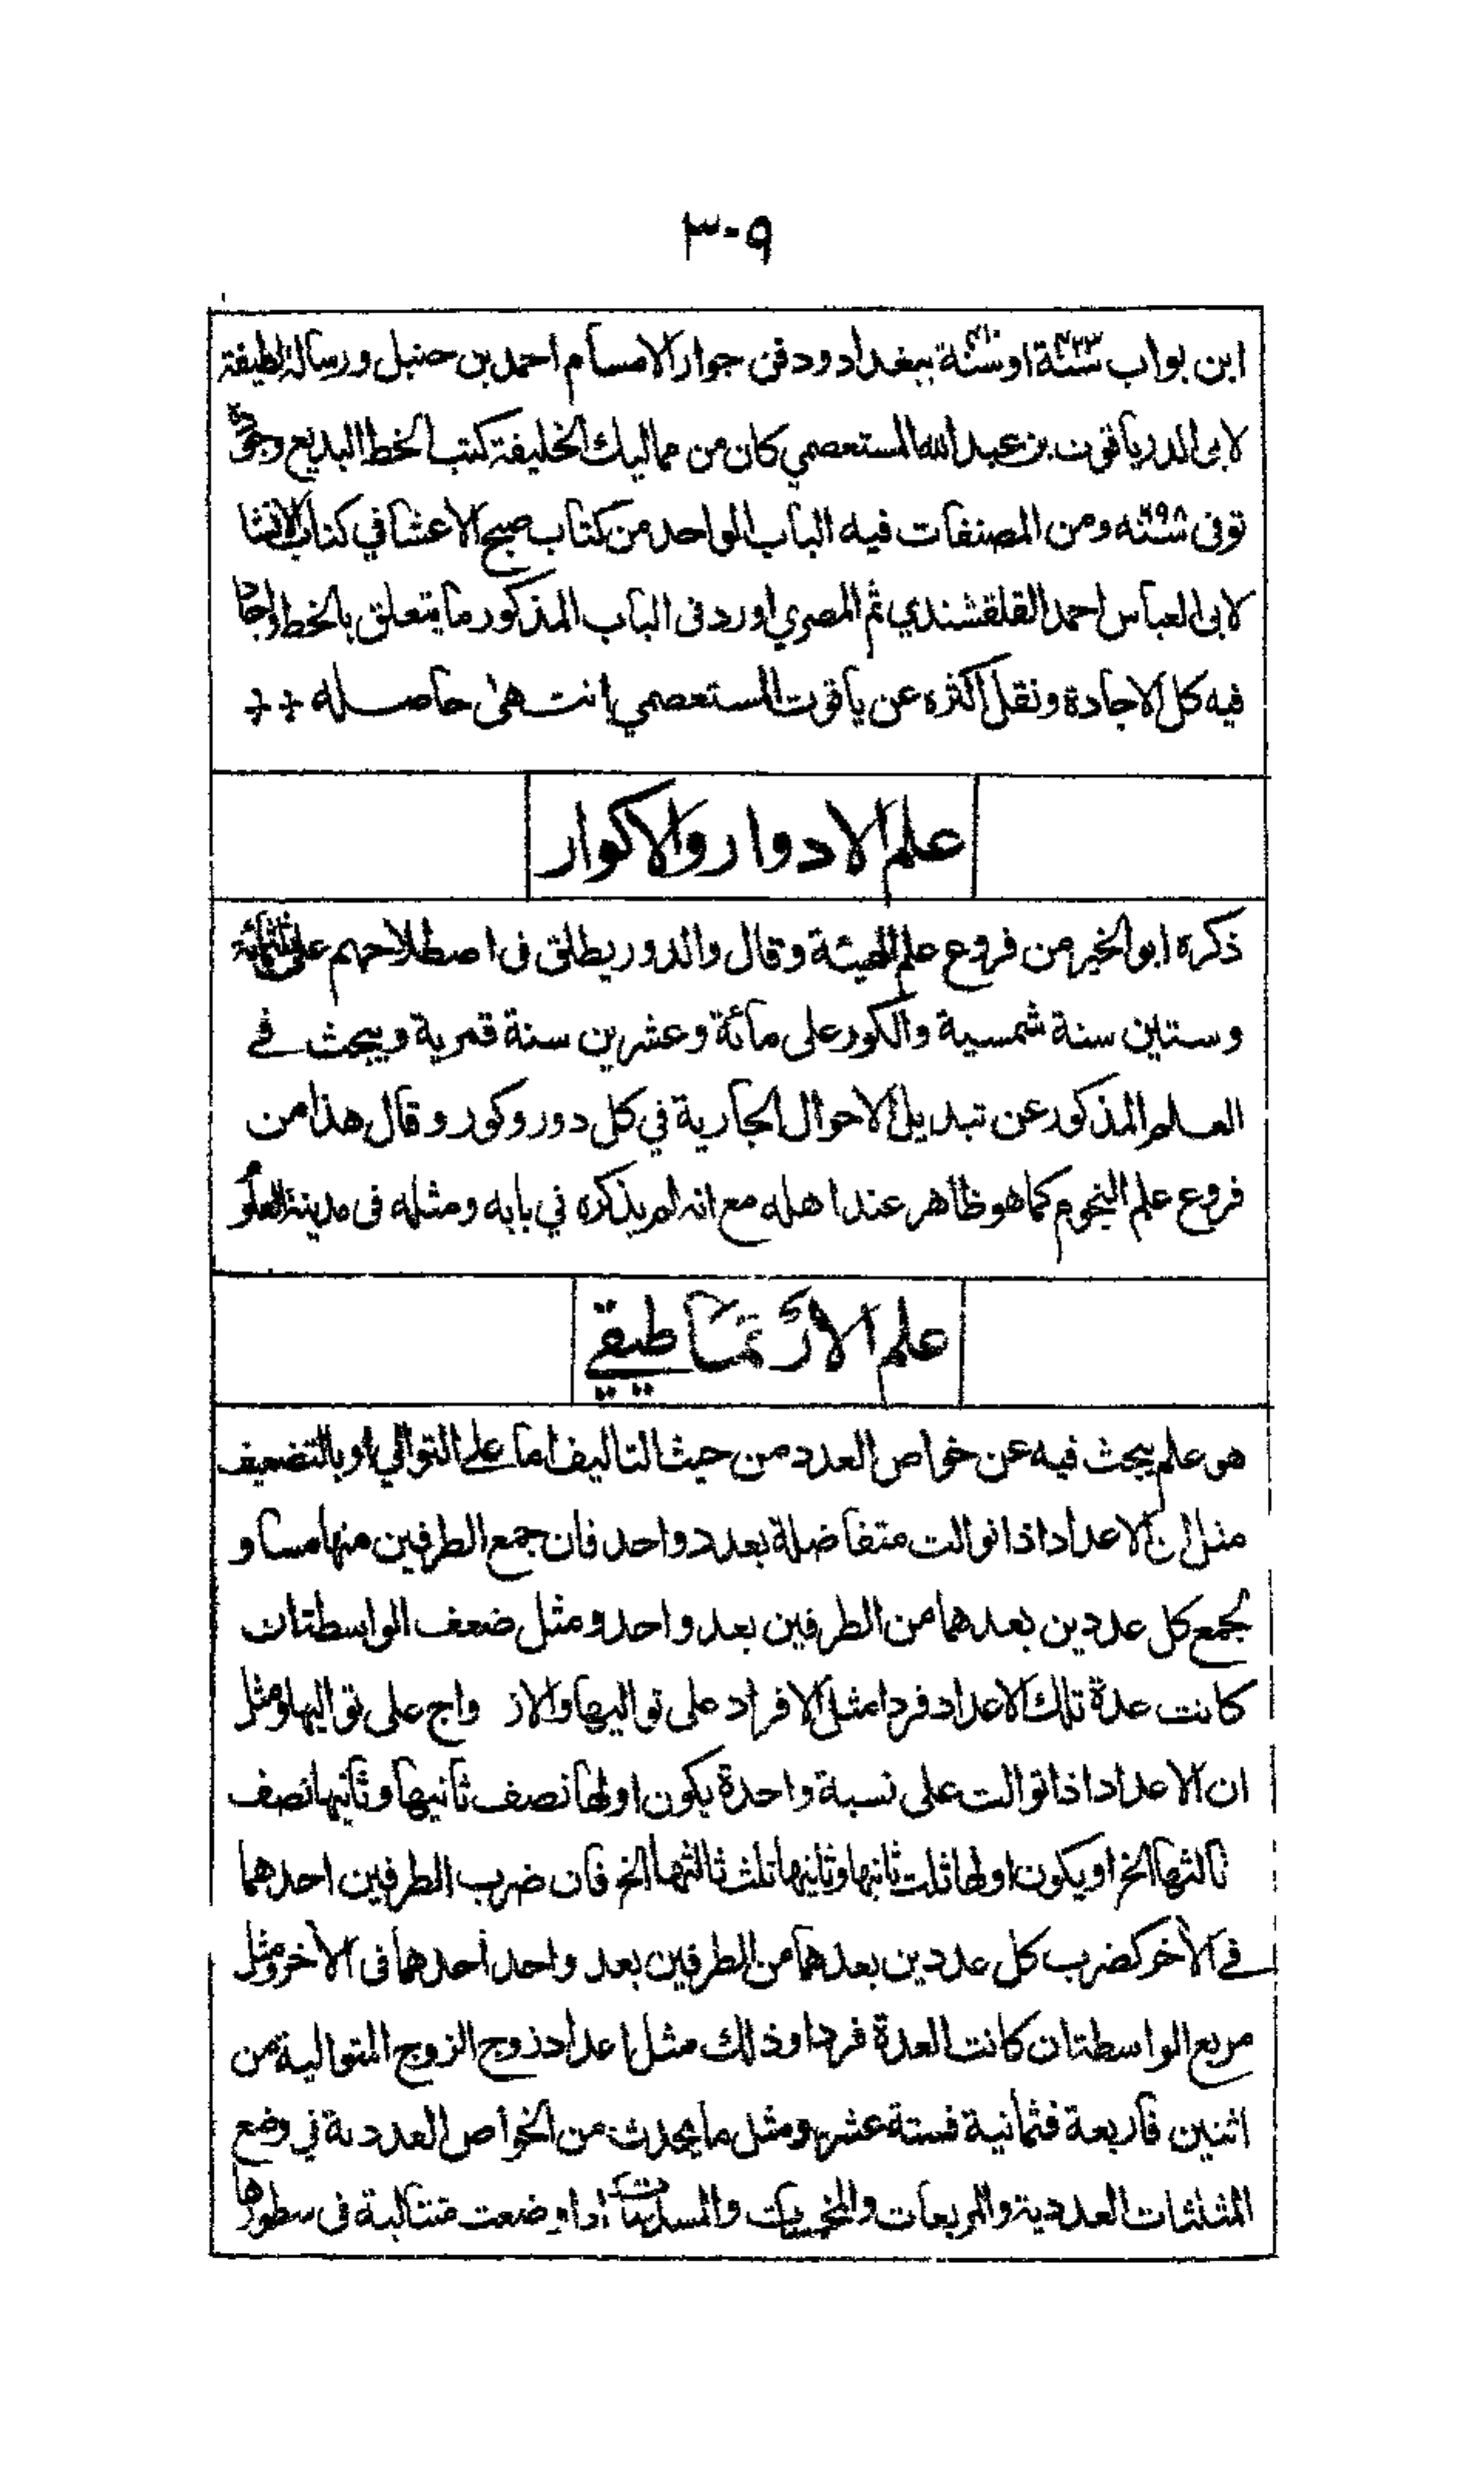 ٣٠٩
ابن بواب سنة ٤٢٣ او سنة ببغداد ودفن جوار الامام احمد بن حنبل ورسالة لطيفة
لابى الدر ياقوت بن عبد الله المستعصمي كان من مماليك الخليفة كتب الخط البديع وجوده
توفى سنة ٦٩٨ ومن المصنفات فيه الباب الواحد من كتاب صبح الاعشا في كتاب الانشا
لابى العباس احمد القلقشندي ثم المصري اورد فى الباب المذكور ما يتعلق بالخط واجاد
فيه كل الاجادة ونقل اكثره عن ياقوت المستعصمي انتهىٰ حاصله
علم الادوار والاكوار
ذكره ابو الخير من فروع علم الهيئة وقال والدور يطلق فى اصطلاحهم على ثلثمائة
وستين سنة شمسية والكور على مائة وعشرين سنة قمرية ويبحث في
العلم المذكور عن تبديل الاحوال الجارية في كل دور وكور وقال هذا من
فروع علم النجوم كما هو ظاهر عند اهله مع انه لم يذكره في بابه ومثله فى مدينة العلوم
علم الارتماطيقي
هو علم يبحث فيه عن خواص العدد من حيث التاليف اما على التوالي او بالتضعيف
مثل ان الاعداد اذا توالت متفاضلة بعدد واحد فان جمع الطرفين منها مساو
لجمع كل عددين بعدهما من الطرفين بعد واحد ومثل ضعف الواسطة ان
كانت عدة تلك الاعداد فردا مثل الافراد على تواليها والازواج على تواليها ومثل
ان الاعداد اذا توالت على نسبة واحدة يكون اولها نصف ثانيها وثانيها نصف
ثالثها الخ او يكون اولها ثلث ثانيها وثانيها ثلث ثالثها الخ فان ضرب الطرفين احدهما
في الأخر كضرب كل عددين بعدهما من الطرفين بعد واحد أحدهما فى الأخر ومثل
مربع الواسطة ان كانت العدة فردا وذلك مثل اعداد زوج الزوج المتوالية من
اثنين فاربعة فثمانية فستة عشر ومثل ما يحدث من الخواص العددية في وضع
المثلثات العددية والمربعات والمخمسات والمسدسات اذا وضعت متتالية فى سطورها